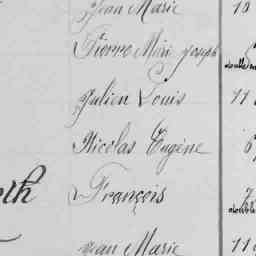 Jean Marie 10
Pierre Marie Joseph
Julien Louis 11
Nicolas Eugène
François
Jean Marie 11